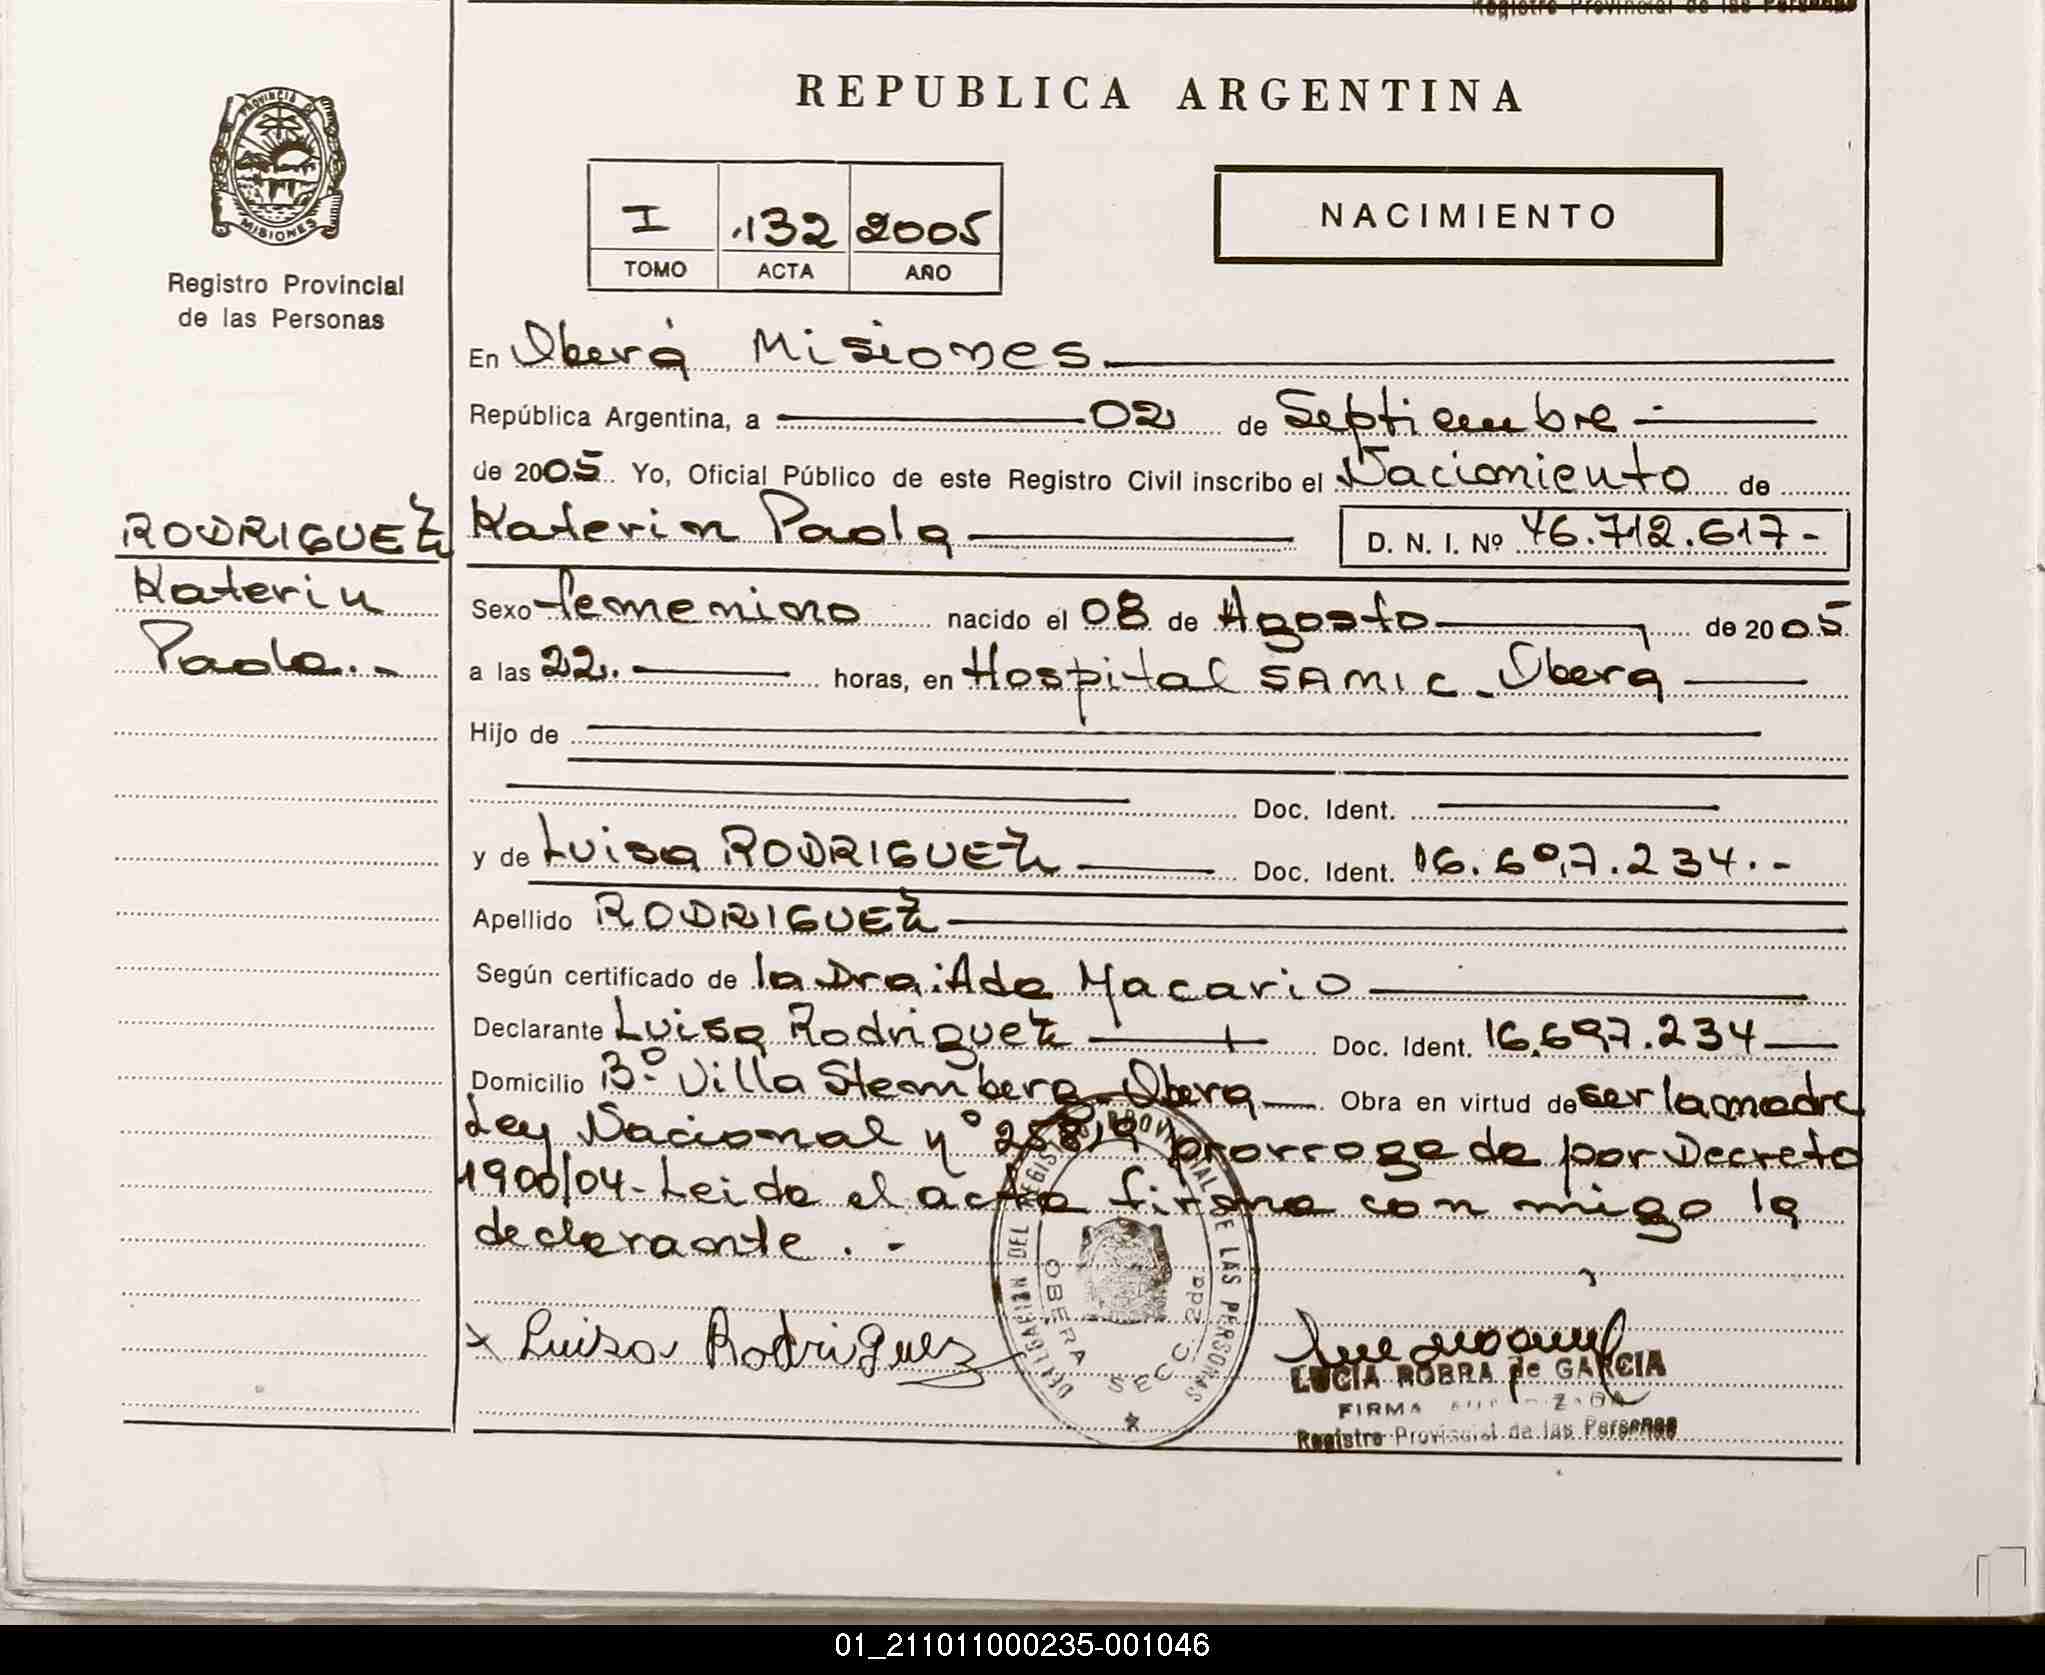 Registro Provincial de las Personas
REPUBLICA ARGENTINA
PROVINCIA DE
MISIONES
Registro Provincial
de las Personas
I .132 2005
TOMO ACTA AÑO
NACIMIENTO
En Oberá Misiones
República Argentina, a 02 de Septiembre
de 2005. Yo, Oficial Público de este Registro Civil inscribo el Nacimiento de
RODRIGUEZ
Katerin
Paola.-
Katerin Paola D. N. I. Nº 46.712.617-
Sexo femenino nacido el 08 de Agosto de 2005
a las 22. horas, en Hospital SAMIC - Oberá
Hijo de
Doc. Ident.
y de Luisa RODRIGUEZ Doc. Ident. 16.697.234.-
Apellido RODRIGUEZ
Según certificado de la Dra: Ada Macario
Declarante Luisa Rodriguez Doc. Ident. 16.697.234
Domicilio Bº Villa Stemberg - Oberá Obra en virtud de ser la madre
Ley Nacional nº prorrogada por Decreto
1900/04 - Leida el acta firma con migo la
declarante.-
x Luisa Rodriguez
DELEGACION DEL REGISTRO PROVINCIAL DE LAS PERSONAS
OBERA SECC. 2da
LUCIA ROBRA de GARCIA
FIRMA AUTORIZADA
Registro Provincial de las Personas
01_211011000235-001046